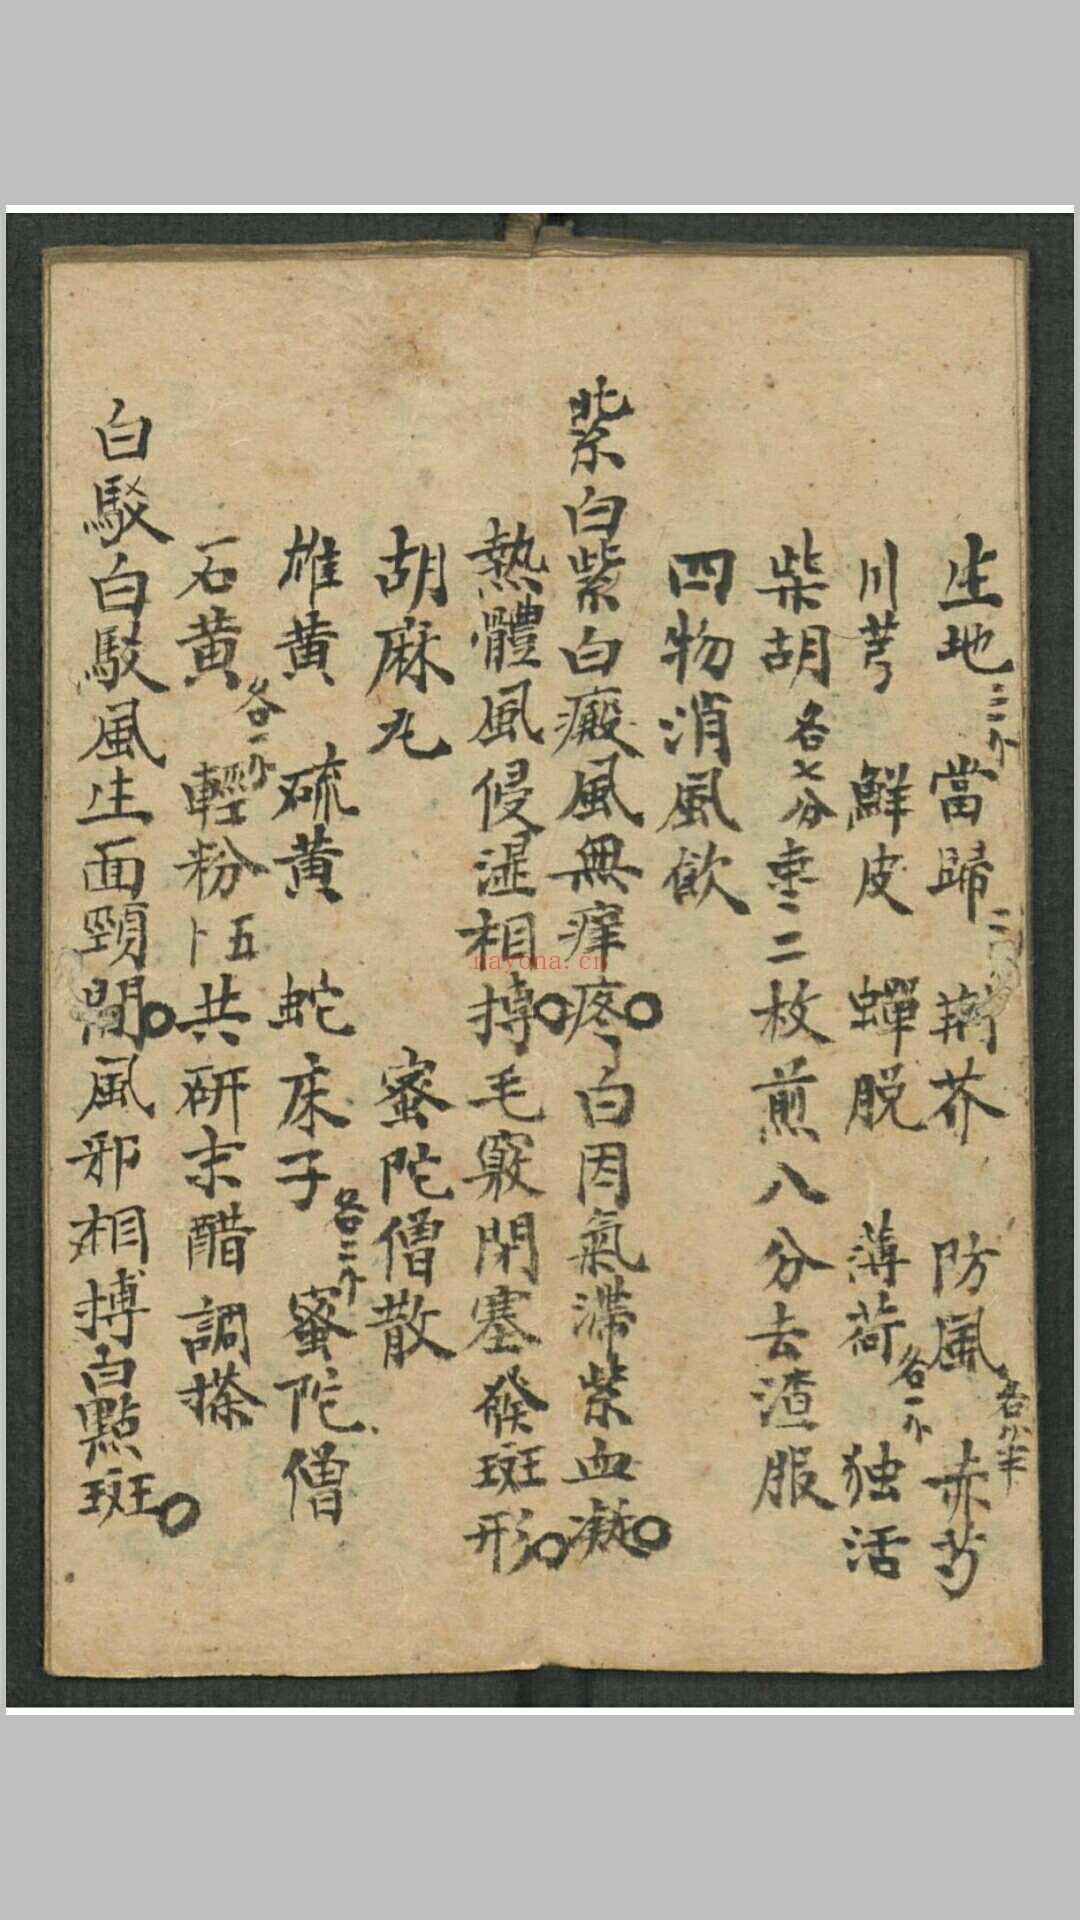 生地三个 當歸二 荆芥 防風 赤芍各个半
川芎 鮮皮 蟬脱 薄荷各一个 独活
柴胡各七分 枣二枚煎八分去渣服
四物消風飲
紫白紫白癜風無痒疼○白因氣滯紫血凝○
熱體風侵湿相搏○毛竅閉塞發斑形○
胡麻丸 蜜陀僧散
雄黄 硫黄 蛇床子各二个 蜜陀僧
石黄各一个 輕粉五卜共研末醋調搽
白駁白駁風生面頸間○風邪相搏白點斑○
nayona.cn